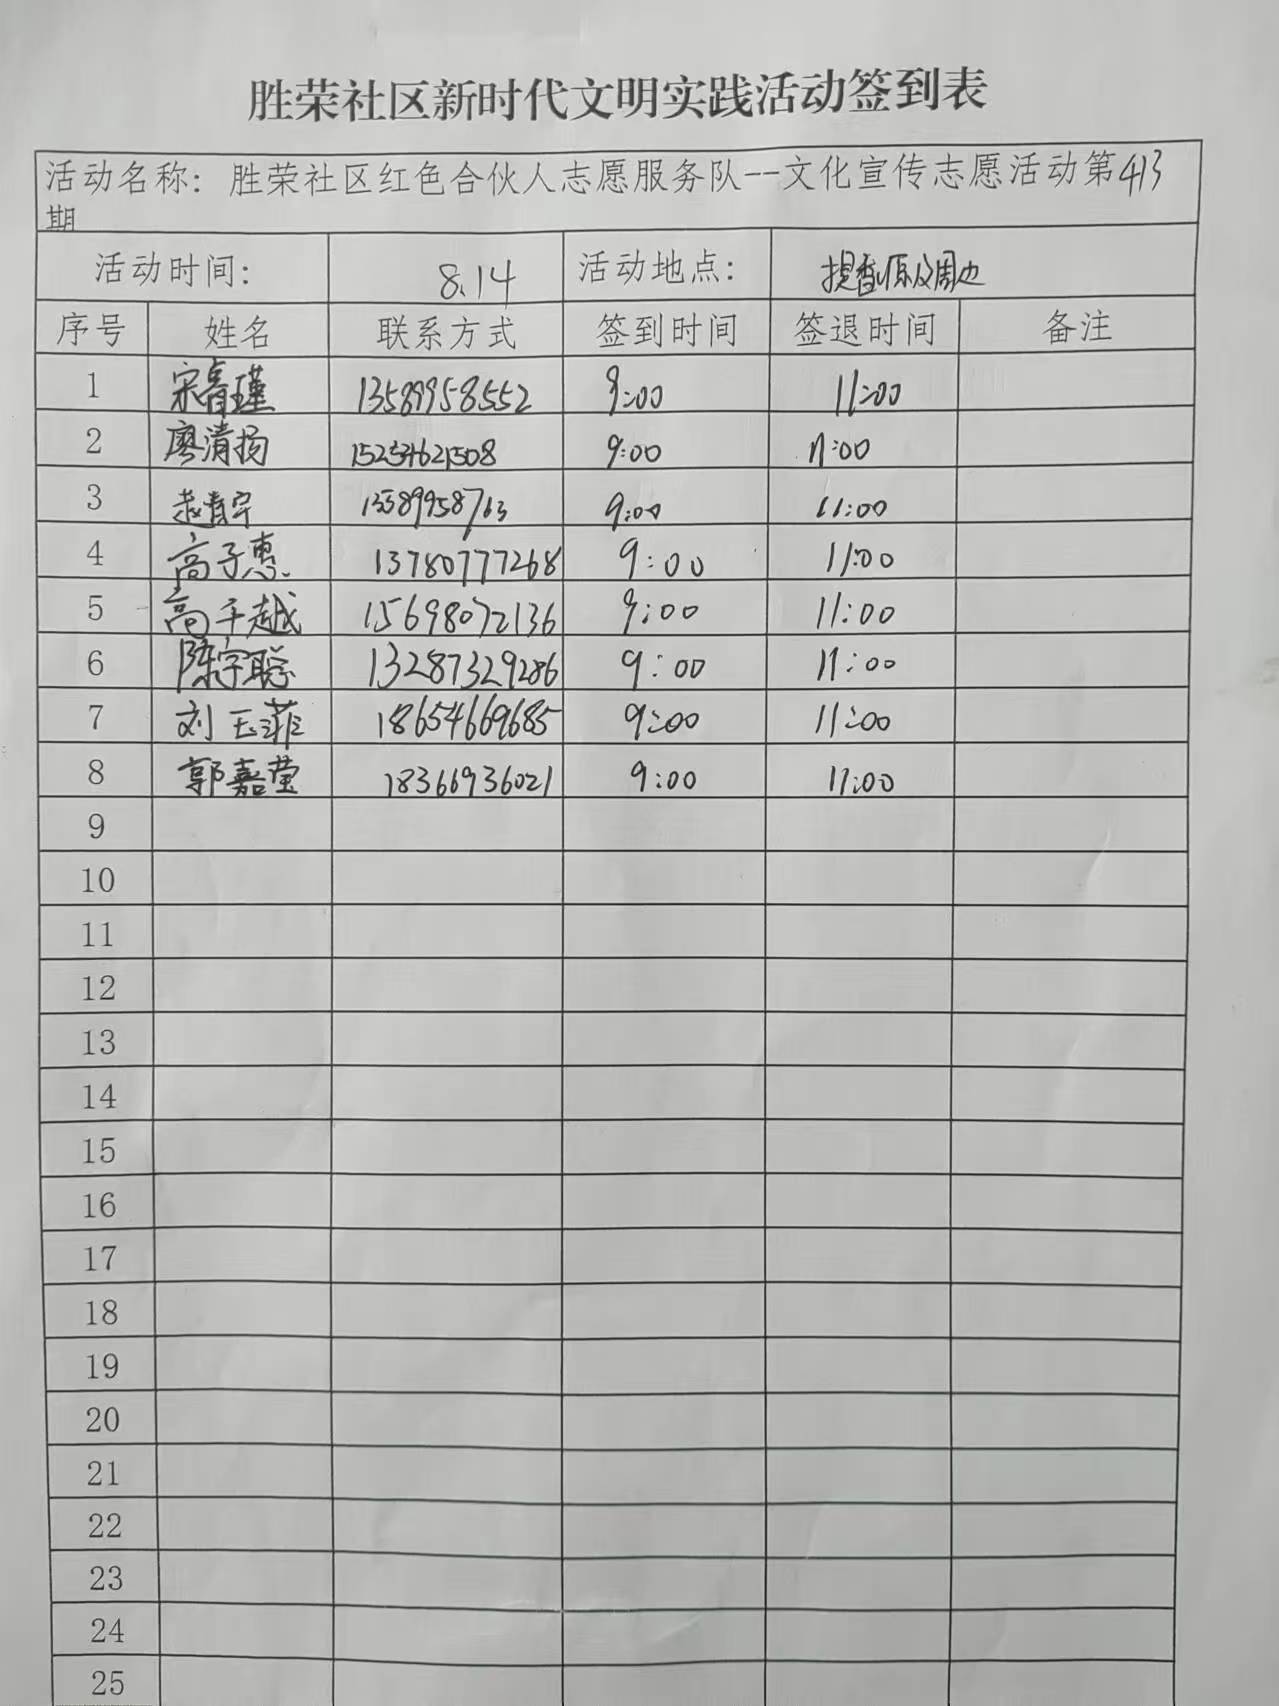 胜荣社区新时代文明实践活动签到表
活动名称：胜荣社区红色合伙人志愿服务队--文化宣传志愿活动第413
期
活动时间： 8.14 活动地点： 提香源及周边
序号 姓名 联系方式 签到时间 签退时间 备注
1 宋睿瑾 13589958552 9:00 11:00
2 廖清扬 15254621508 9:00 11:00
3 13589958763 9:00 11:00
4 高子惠 13780777268 9:00 11:00
5 高千越 15698072136 9:00 11:00
6 陈宇聪 13287329286 9:00 11:00
7 刘玉菲 18654669685 9:00 11:00
8 郭嘉莹 18366936021 9:00 11:00
9
10
11
12
13
14
15
16
17
18
19
20
21
22
23
24
25